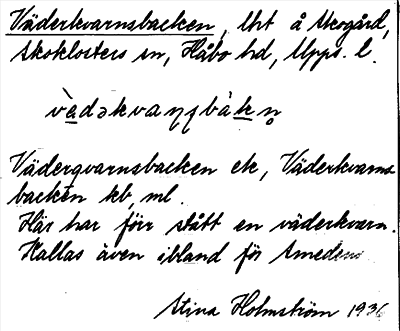 Väderkvarnsbacken, lht å Skogård,
Skoklosters sn, Håbo hd, Upps. l.
vàdəkvaɳʂbàkn̥
Väderqvarnsbacken ek, Väderkvarns-
backen kb, ml.
Här har förr stått en väderkvarn.
Kallas även ibland för Smedens
Stina Holmström 1936